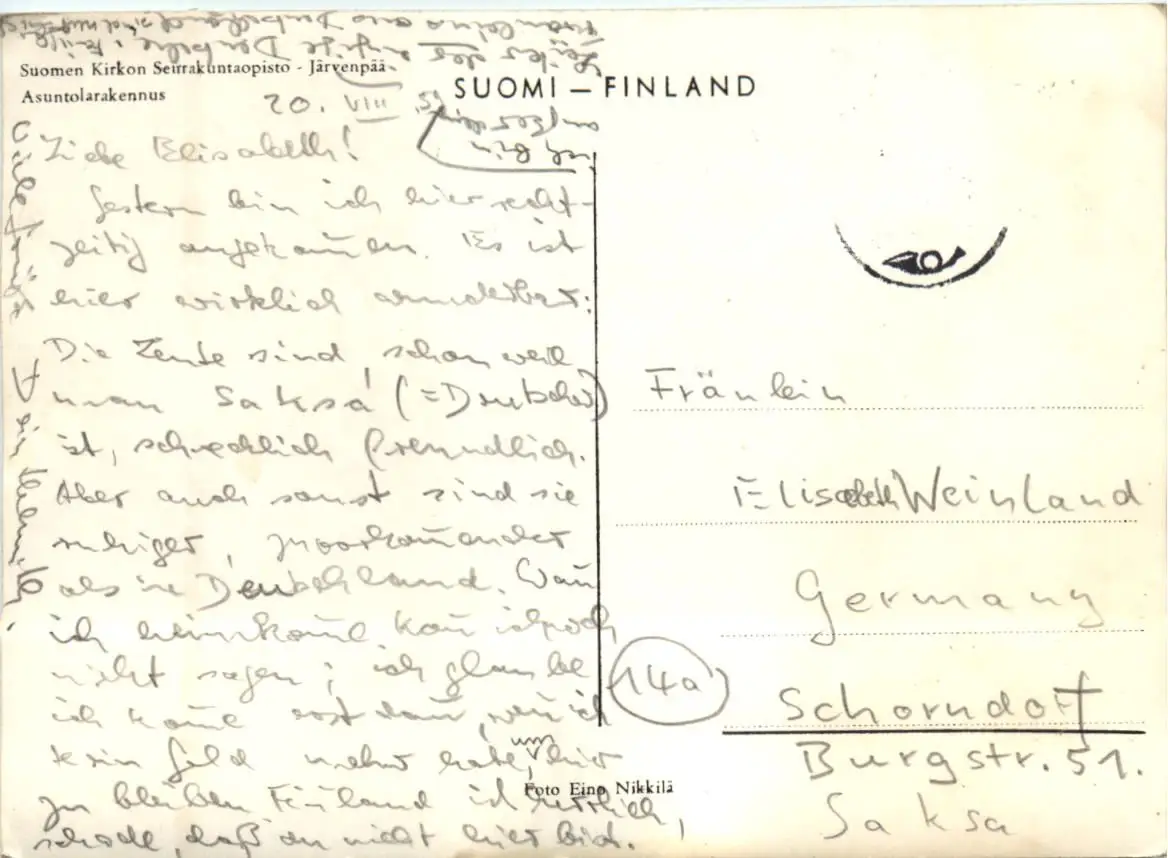 Suomen Kirkon Seurakuntaopisto - Järvenpää
Asuntolarakennus
SUOMI – FINLAND
20. VIII. 59
Liebe Elisabeth!
Gestern bin ich hier recht-
zeitig angekom̄en. Es ist
hier wirklich wunderbar:
Die Leute sind, schon weil
man Saksa (=Deutscher)
ist, schrecklich freundlich.
Aber auch sonst sind sie
ruhiger, zuvorkom̄ender
als in Deutschland. Wan̄
ich heimkom̄e kan̄ ich noch
nicht sagen; ich glaube
ich kom̄e erst dan̄, wen̄ ich
kein Geld mehr habe, um hier
zu bleiben. Fin̄land ist herrlich,
schade, daß du nicht hier bist.
Viele Grüße
Dein
Foto Eino Nikkilä
Fräulein
Elisabeth Weinland
Germany
14a
Schorndorf
Burgstr. 51.
Saksa